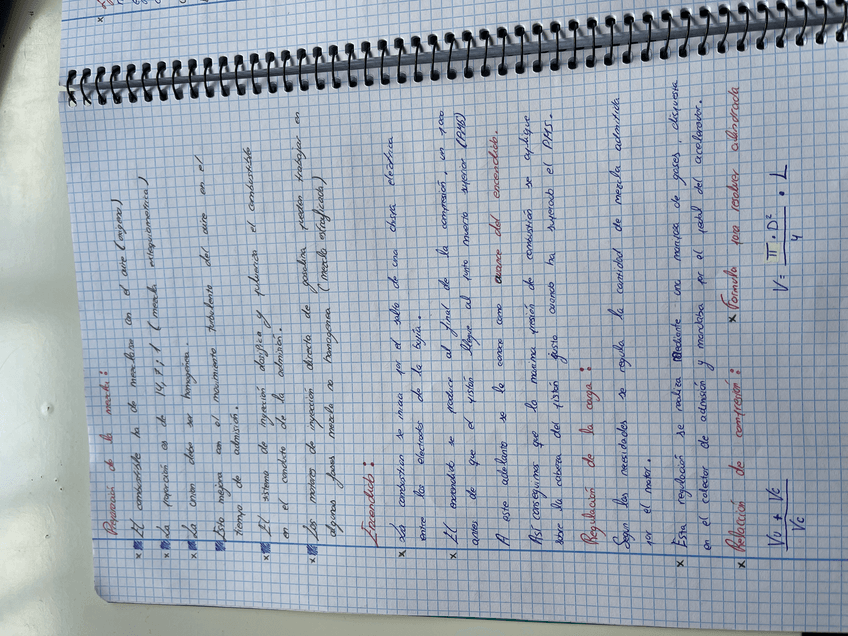 Preparación de la mezcla:
x El combustible ha de mezclarse con el aire (oxígeno)
x La proporción es de 14,7:1 (mezcla estequiometrica)
x La union debe ser homogénea.
x Esto mejora con el movimiento turbulento del aire en el
tiempo de admisión.
x El sistema de inyección dosifica y pulveriza el combustible
en el conducto de la admisión.
x Los motores de inyección directa de gasolina pueden trabajar en
algunas fases mezcla no homogénea (mezcla estratificada)
Encendido:
x La combustion se inicia por el salto de una chispa eléctrica
entre los electrodos de la bujía.
x El encendido se produce al final de la compresión, un poco
antes de que el pistón llegue al punto muerto superior (PMS)
A este adelanto se le conoce como avance del encendido.
Así conseguimos que la máxima presión de combustión se aplique
sobre la cabeza del pistón justo cuando ha superado el PMS.
Regulación de la carga:
Segun las necesidades se regula la cantidad de mezcla admitida
por el motor.
x Esta regulación se realiza mediante una mariposa de gases, dispuesta
en el colector de admisión y mandada por el pedal del acelerador.
x Relacción de compresión:
Vu + Vc
Vc
x Formula para resolver cilindrada
V = π · D² · L
4